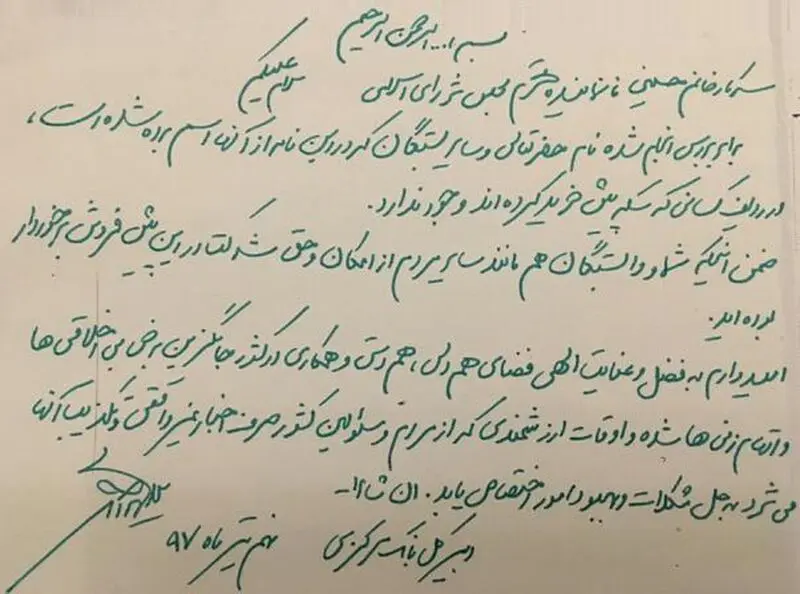 بسم ا... الرحمن الرحیم
سرکار خانم حسینی نماینده محترم مجلس شورای اسلامی سلام علیکم
برابر بررسی انجام شده نام حضرتعالی و سایر بستگان که در این نامه از آنها اسم برده شده است،
در ردیف کسانی که سکه پیش خرید کرده اند وجود ندارد.
ضمن آنکه شما و وابستگان هم مانند سایر مردم از امکان و حق شرکت در این پیش فروش برخوردار
بوده اید.
امیدوارم به فضل و عنایت الهی فضای هم دلی، هم دستی و همکاری در کشور جایگزین برخی بی اخلاقی ها
و اتهام زنی ها شده و اوقات ارزشمندی که از مردم و مسئولین کشور صرف اخبار غیر واقعی و تکذیب آنها
می شود به حل مشکلات و بهبود امور اختصاص یابد. ان شاءا...
دبیرکل بانک مرکزی نهم تیر ماه ۹۷